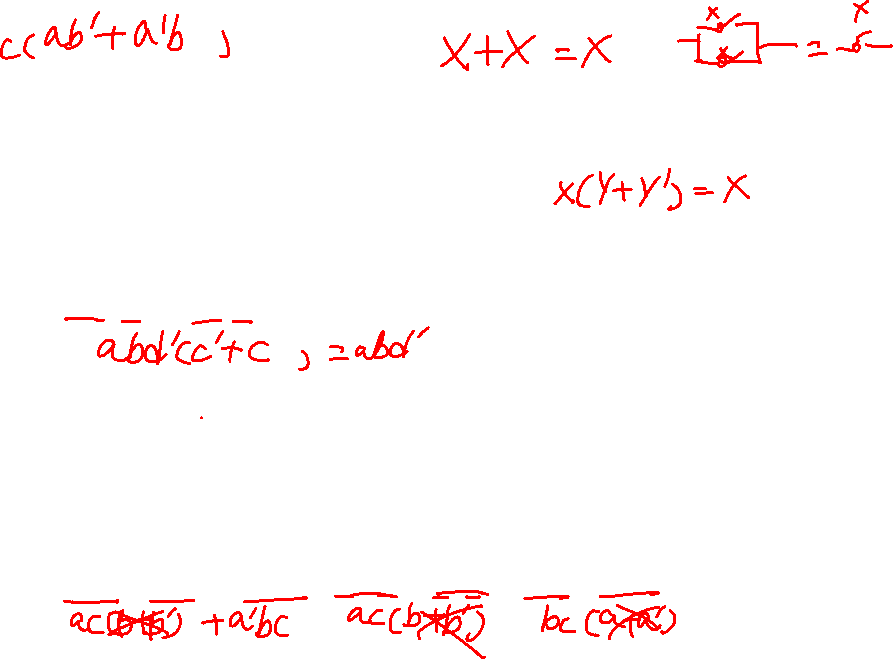 c(ab'+a'b )
X+X=X
x
x
=
x
x(y+y')=x
abd'(c'+c )=abd'
ac(b+b')+a'bc ac(b+b') bc(a+a')